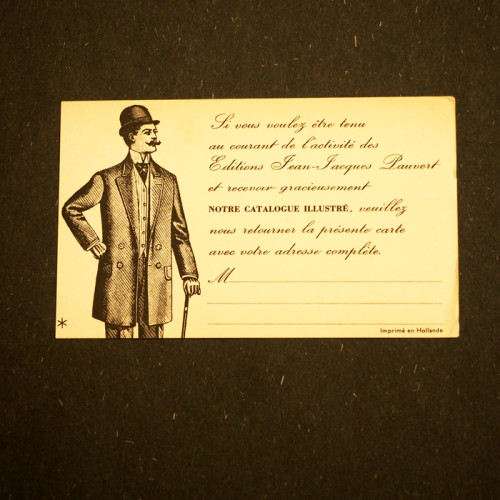 Si vous voulez être tenu
au courant de l'activité des
Editions Jean-Jacques Pauvert
et recevoir gracieusement
NOTRE CATALOGUE ILLUSTRÉ, veuillez
nous retourner la présente carte
avec votre adresse complète.
M
Imprimé en Hollande